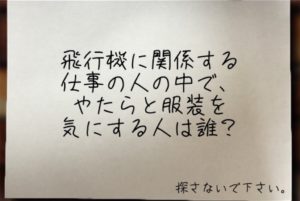 飛行機に関係する
仕事の人の中で、
やたらと服装を
気にする人は誰?
探さないで下さい。